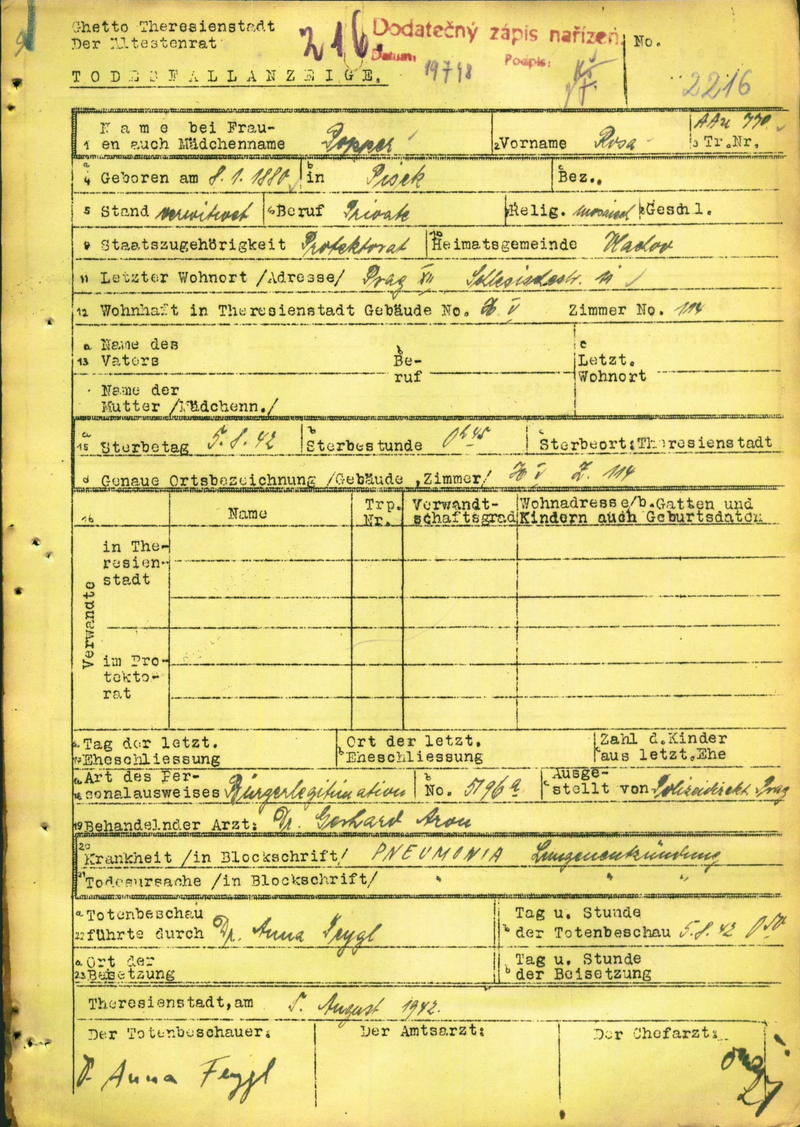 Ghetto Theresienstadt
Der Ältestenrat
TODESFALLANZEIGE.
216.
Dodatečný zápis nařízen.
Datum: 19748 Podpis:
No.
2216
1 Name bei Frauen auch Mädchenname Popper 2 Vorname Rosa 3 Tr.Nr. AAu 770
a 4 Geboren am 8.1.1880 b in Pisek c Bez.,
5 Stand verwitwet 6 Beruf Private 7 Relig. mosaisch 8 Geschl.
9 Staatszugehörigkeit Protektorat 10 Heimatsgemeinde
11 Letzter Wohnort /Adresse/ Prag XII
12 Wohnhaft in Theresienstadt Gebäude No. Zimmer No. 114
a 13 Name des Vaters b Beruf c Letzt. Wohnort
Name der Mutter /Mädchenn./
a 15 Sterbetag 5.8.42 b Sterbestunde 0h45 c Sterbeort: Theresienstadt
d Genaue Ortsbezeichnung /Gebäude, Zimmer/ Z. 114
16 Name Trp. Nr. Verwandtschaftsgrad Wohnadresse/b.Gatten und Kindern auch Geburtsdaten
Verwandte
in Theresienstadt
im Protektorat
a 17 Tag der letzt. Eheschliessung b Ort der letzt. Eheschliessung c Zahl d.Kinder aus letzt.Ehe
a 18 Art des Personalausweises Bürgerlegitimation b No. 5796a c Ausgestellt von Polizeidirekt. Prag
19 Behandelnder Arzt: Dr. Gerhard Aron
20 Krankheit /in Blockschrift/ PNEUMONIA Lungenentzündung
21 Todesursache /in Blockschrift/ " " "
a 22 Totenbeschau führte durch Dr. Anna Feygl b Tag u. Stunde der Totenbeschau 5.8.42 0.50
a 23 Ort der Beisetzung b Tag u. Stunde der Beisetzung
Theresienstadt, am 5. August 1942.
Der Totenbeschauer: Der Amtsarzt: Der Chefarzt:
Dr. Anna Feygl